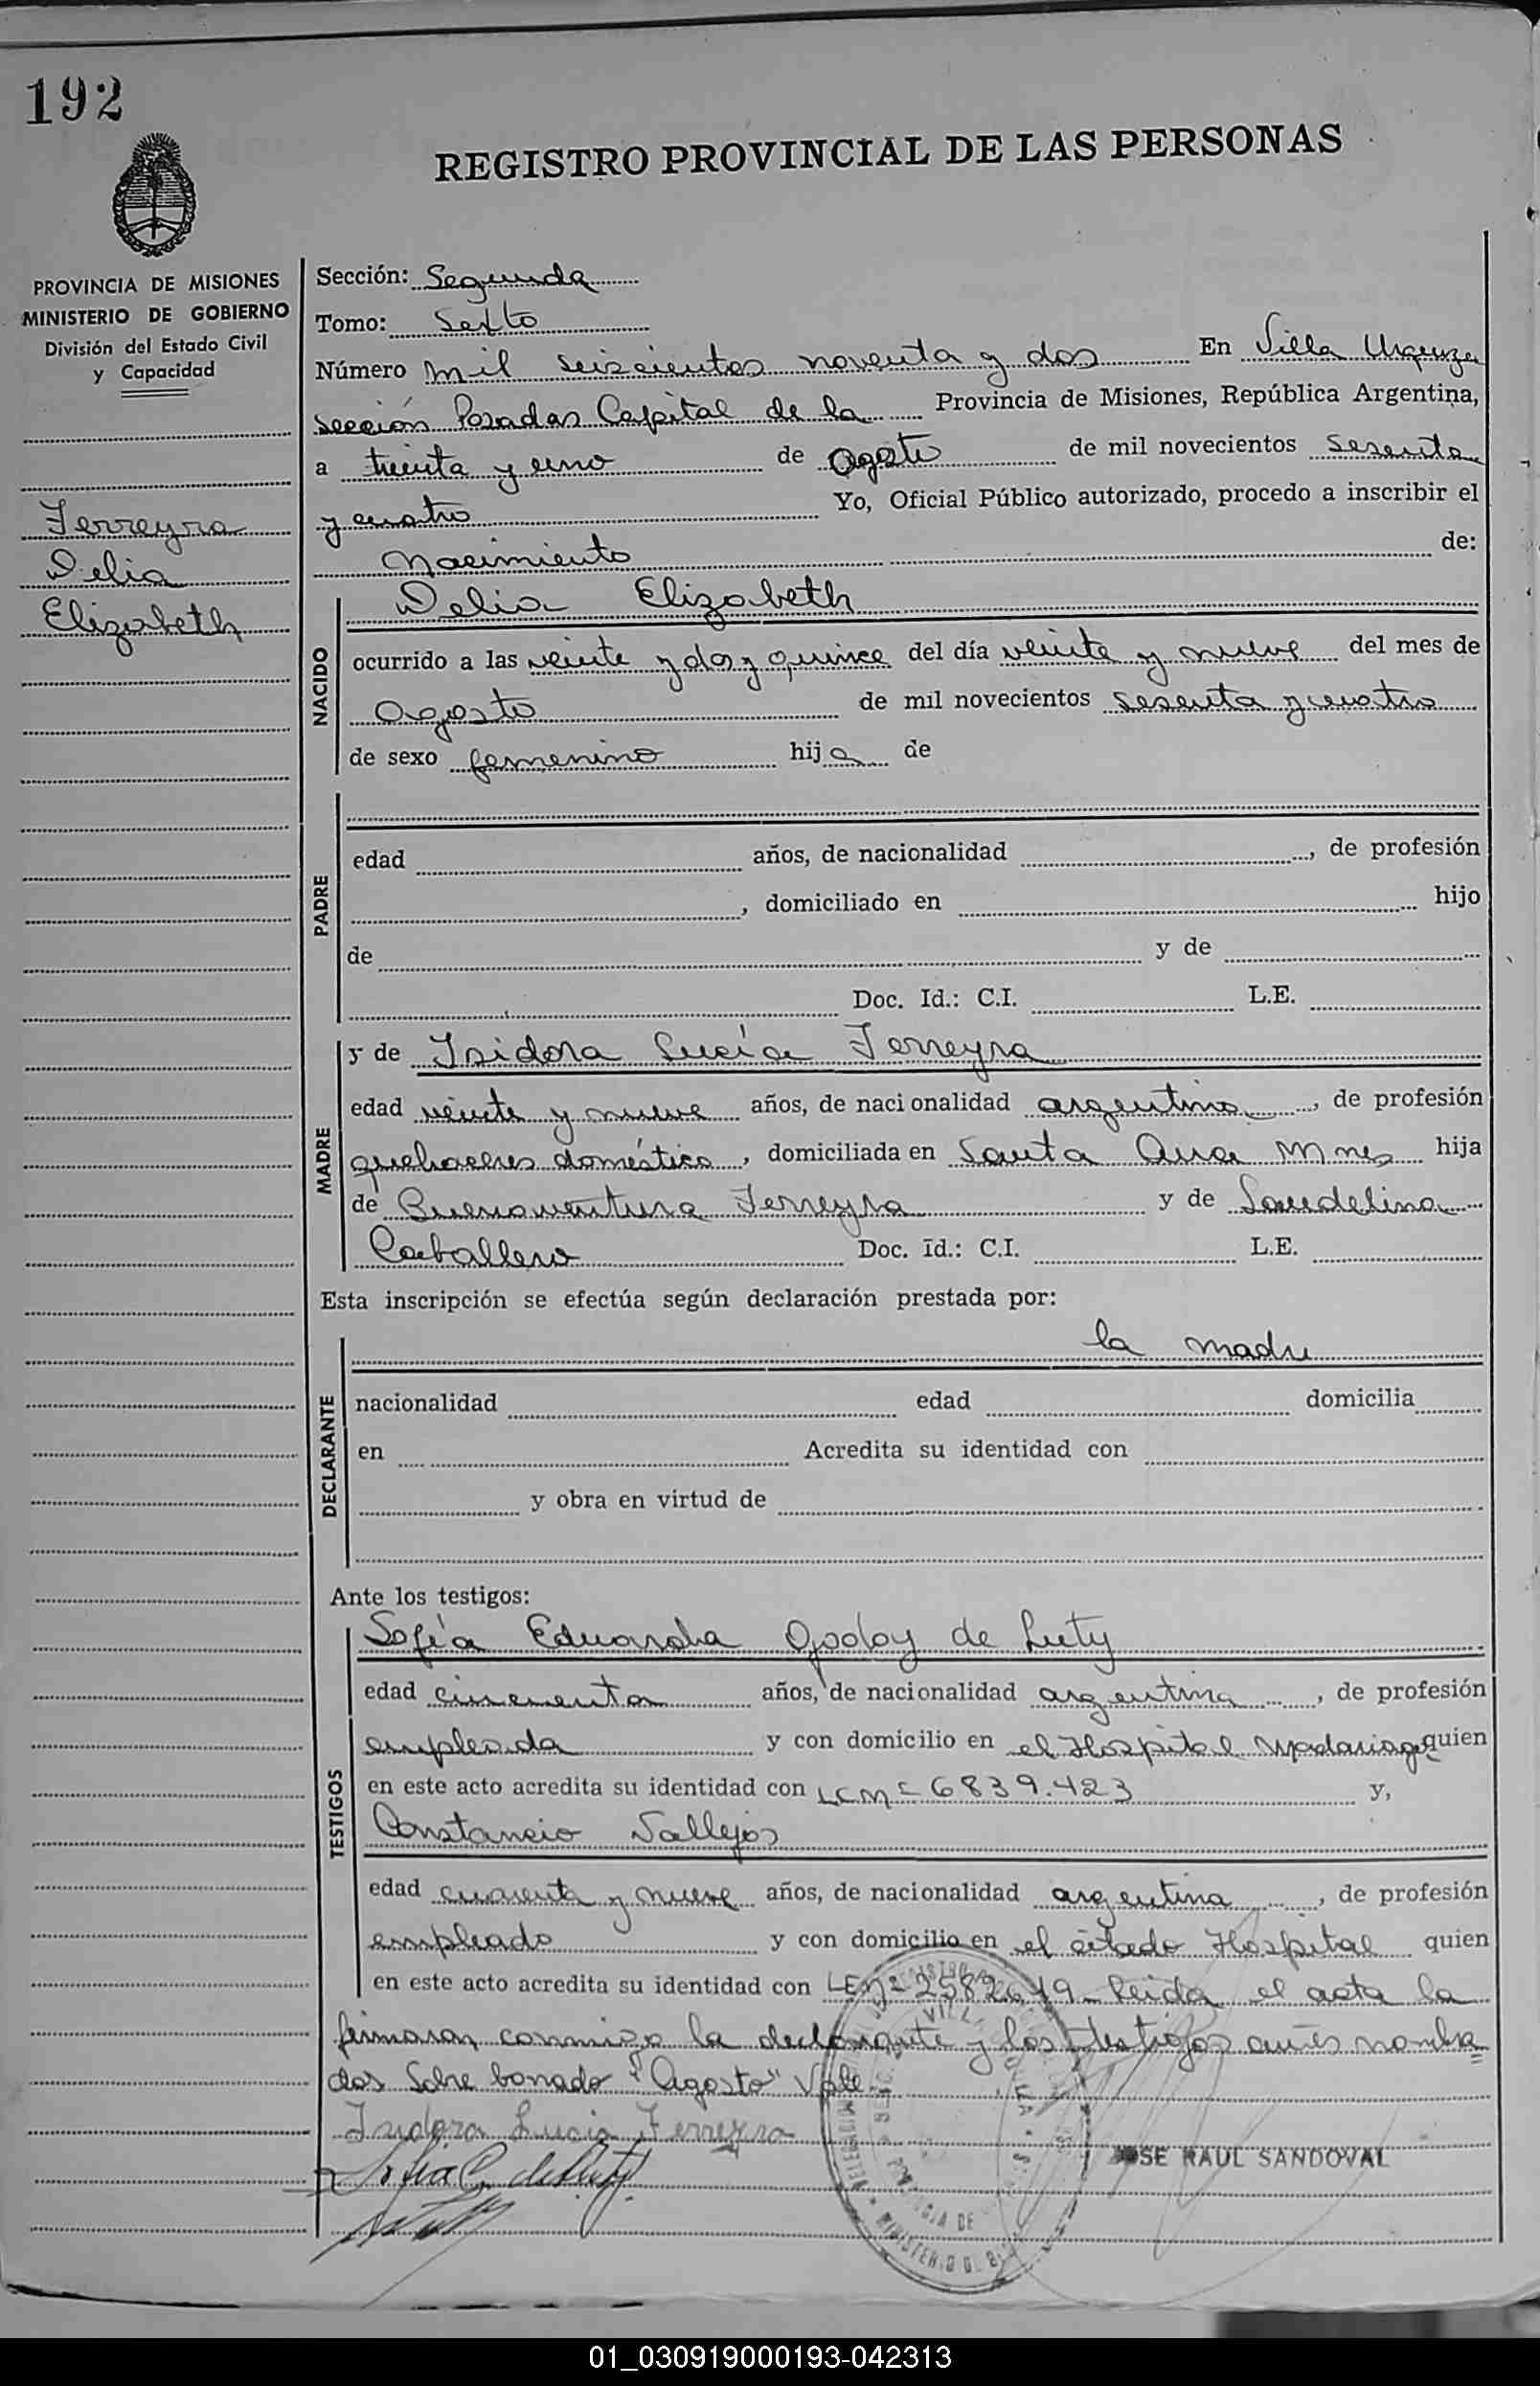 192
REGISTRO PROVINCIAL DE LAS PERSONAS
PROVINCIA DE MISIONES
MINISTERIO DE GOBIERNO
División del Estado Civil
y Capacidad
Ferreyra
Delia
Elizabeth
Sección: Segunda
Tomo: Sexto
Número mil seiscientos noventa y dos En Villa Urquiza
sección Posadas Capital de la Provincia de Misiones, República Argentina,
a treinta y uno de Agosto de mil novecientos sesenta
y cuatro Yo, Oficial Público autorizado, procedo a inscribir el
Nacimiento de:
NACIDO
Delia Elizabeth
ocurrido a las veinte y dos y quince del día veinte y nueve del mes de
Agosto de mil novecientos sesenta y cuatro
de sexo femenino hija de
PADRE
edad años, de nacionalidad , de profesión
, domiciliado en hijo
de y de
Doc. Id.: C.I. L.E.
MADRE
y de Isidora Lucía Ferreyra
edad veinte y nueve años, de nacionalidad argentina, de profesión
quehaceres doméstico, domiciliada en Santa Ana Mnes hija
de Buenaventura Ferreyra y de Laudelina
Caballero Doc. Id.: C.I. L.E.
Esta inscripción se efectúa según declaración prestada por:
DECLARANTE
la madre
nacionalidad edad domicilia
en Acredita su identidad con
y obra en virtud de
Ante los testigos:
TESTIGOS
Sofía Eduarda Godoy de Luty
edad cincuenta años, de nacionalidad argentina, de profesión
empleada y con domicilio en el Hospital Madariaga quien
en este acto acredita su identidad con LCNº 6839.423 y,
Constancio Vallejos
edad cuarenta y nueve años, de nacionalidad argentina, de profesión
empleado y con domicilio en el citado Hospital quien
en este acto acredita su identidad con LENº 2582619 - Leida el acta la
firmaron conmigo la declarante y los testigos antes nombra
dos Sobre borrado "Agosto" Vale.
Isidora Lucia Ferreyra
Sofia G. de Luty
JOSE RAUL SANDOVAL
01_030919000193-042313